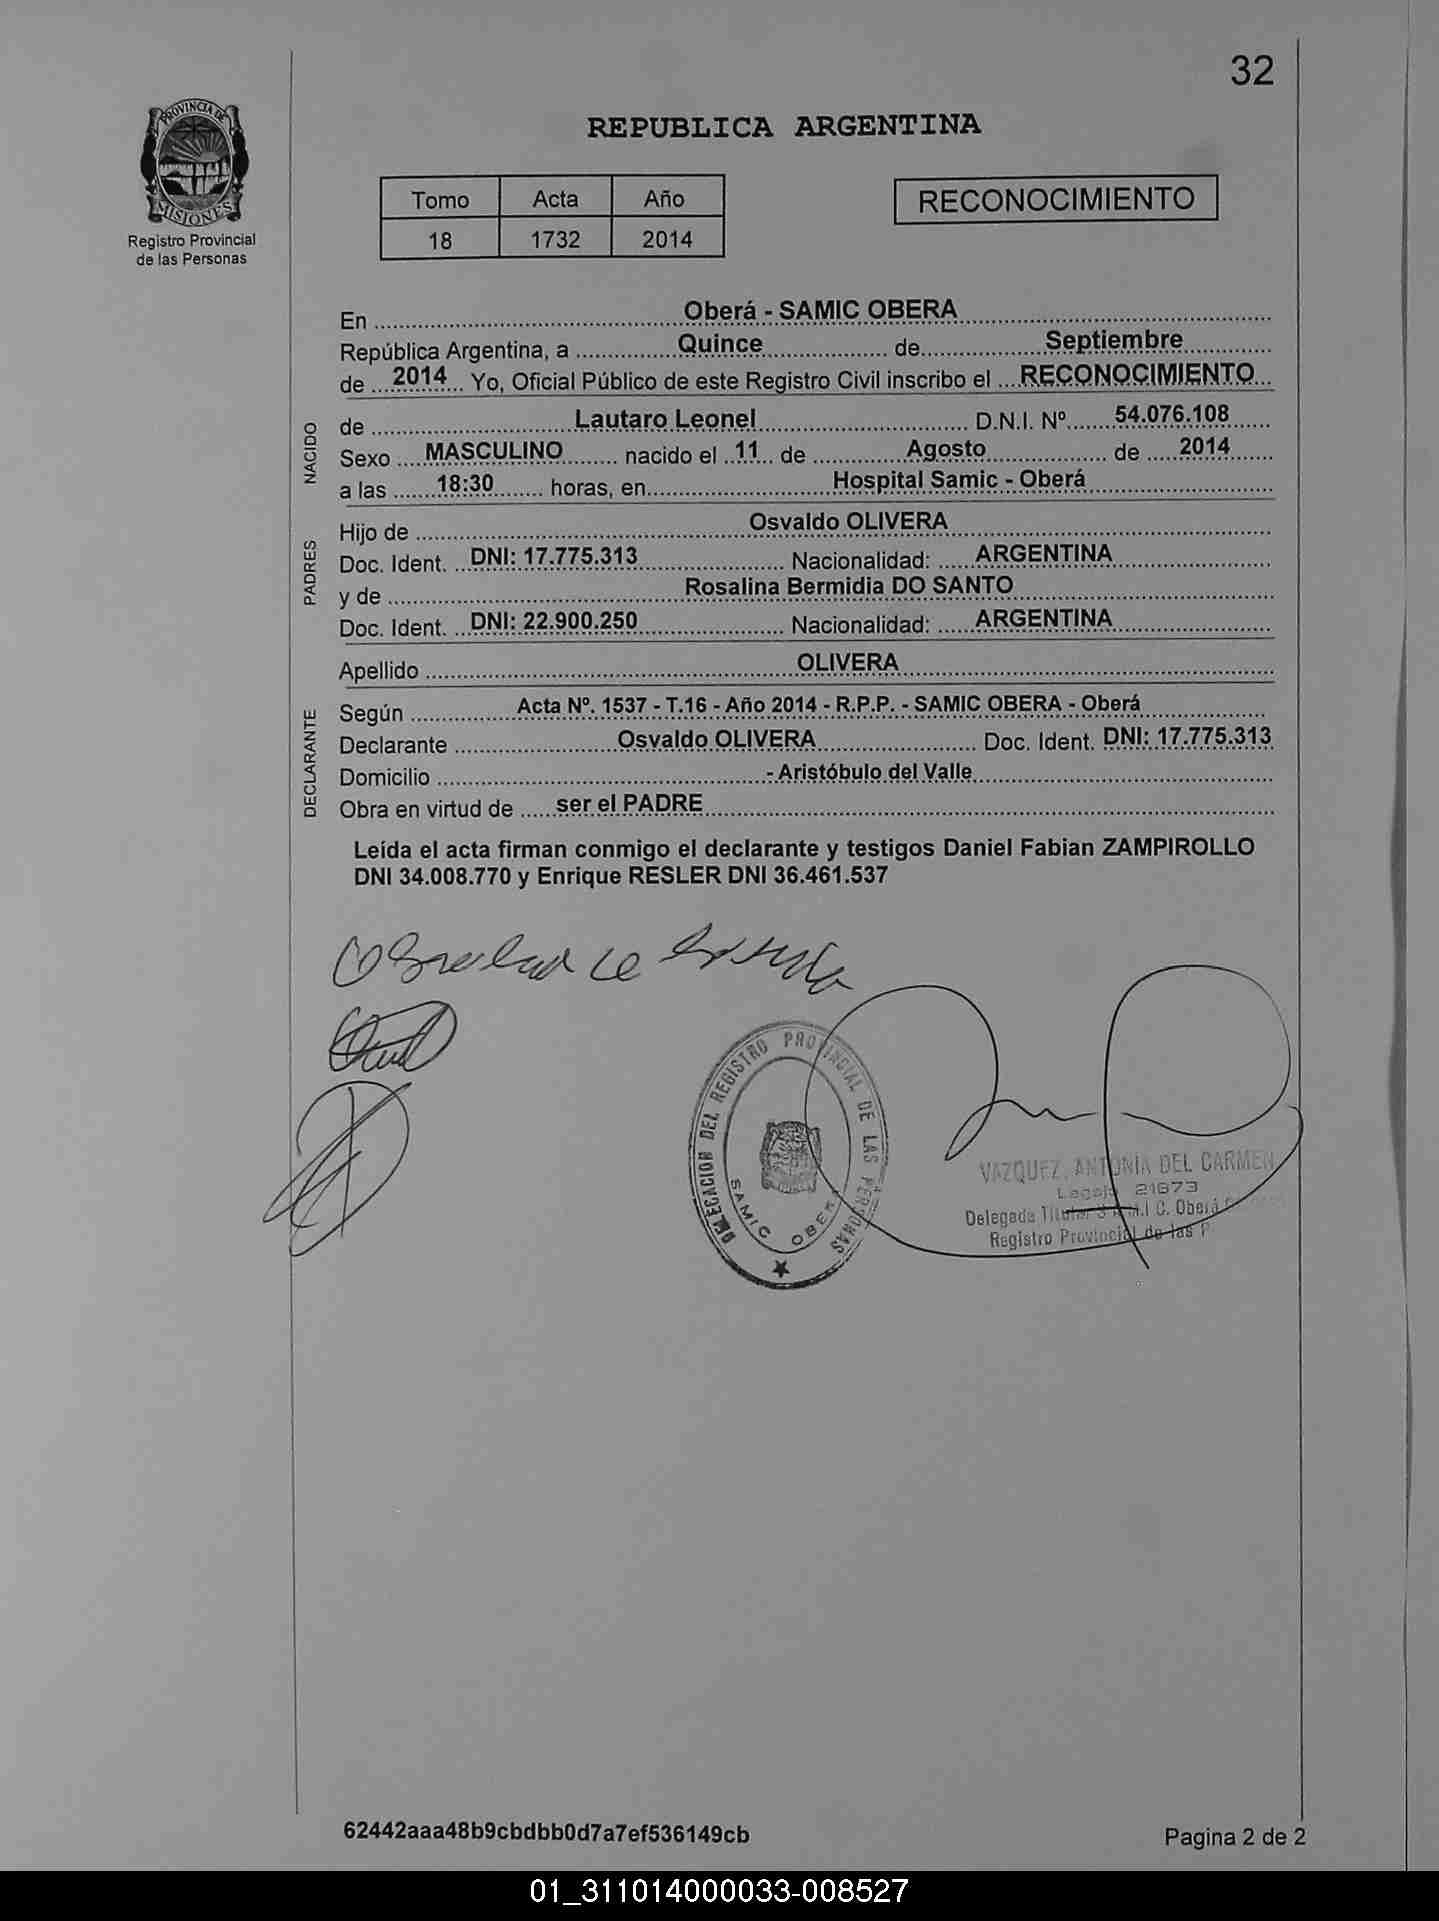 32
PROVINCIA DE
MISIONES
Registro Provincial
de las Personas
REPUBLICA ARGENTINA
Tomo Acta Año
18 1732 2014
RECONOCIMIENTO
En Oberá - SAMIC OBERA
República Argentina, a Quince de Septiembre
de 2014 Yo, Oficial Público de este Registro Civil inscribo el RECONOCIMIENTO
NACIDO
de Lautaro Leonel D.N.I. Nº 54.076.108
Sexo MASCULINO nacido el 11 de Agosto de 2014
a las 18:30 horas, en Hospital Samic - Oberá
PADRES
Hijo de Osvaldo OLIVERA
Doc. Ident. DNI: 17.775.313 Nacionalidad: ARGENTINA
y de Rosalina Bermidia DO SANTO
Doc. Ident. DNI: 22.900.250 Nacionalidad: ARGENTINA
Apellido OLIVERA
DECLARANTE
Según Acta Nº. 1537 - T.16 - Año 2014 - R.P.P. - SAMIC OBERA - Oberá
Declarante Osvaldo OLIVERA Doc. Ident. DNI: 17.775.313
Domicilio - Aristóbulo del Valle
Obra en virtud de ser el PADRE
Leída el acta firman conmigo el declarante y testigos Daniel Fabian ZAMPIROLLO
DNI 34.008.770 y Enrique RESLER DNI 36.461.537
DELEGACION DEL REGISTRO PROVINCIAL DE LAS PERSONAS
SAMIC OBERA
VAZQUEZ, ANTONIA DEL CARMEN
Legajo 21873
Delegada Titular S.A.M.I.C. Oberá
Registro Provincial de las P
62442aaa48b9cbdbb0d7a7ef536149cb
Pagina 2 de 2
01_311014000033-008527